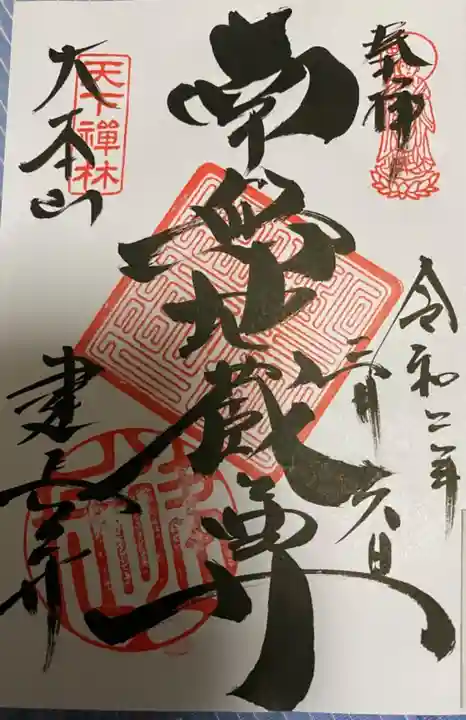 奉拝
令和二年
三月六日
南無地蔵尊
天下禅林
大本山
建長寺